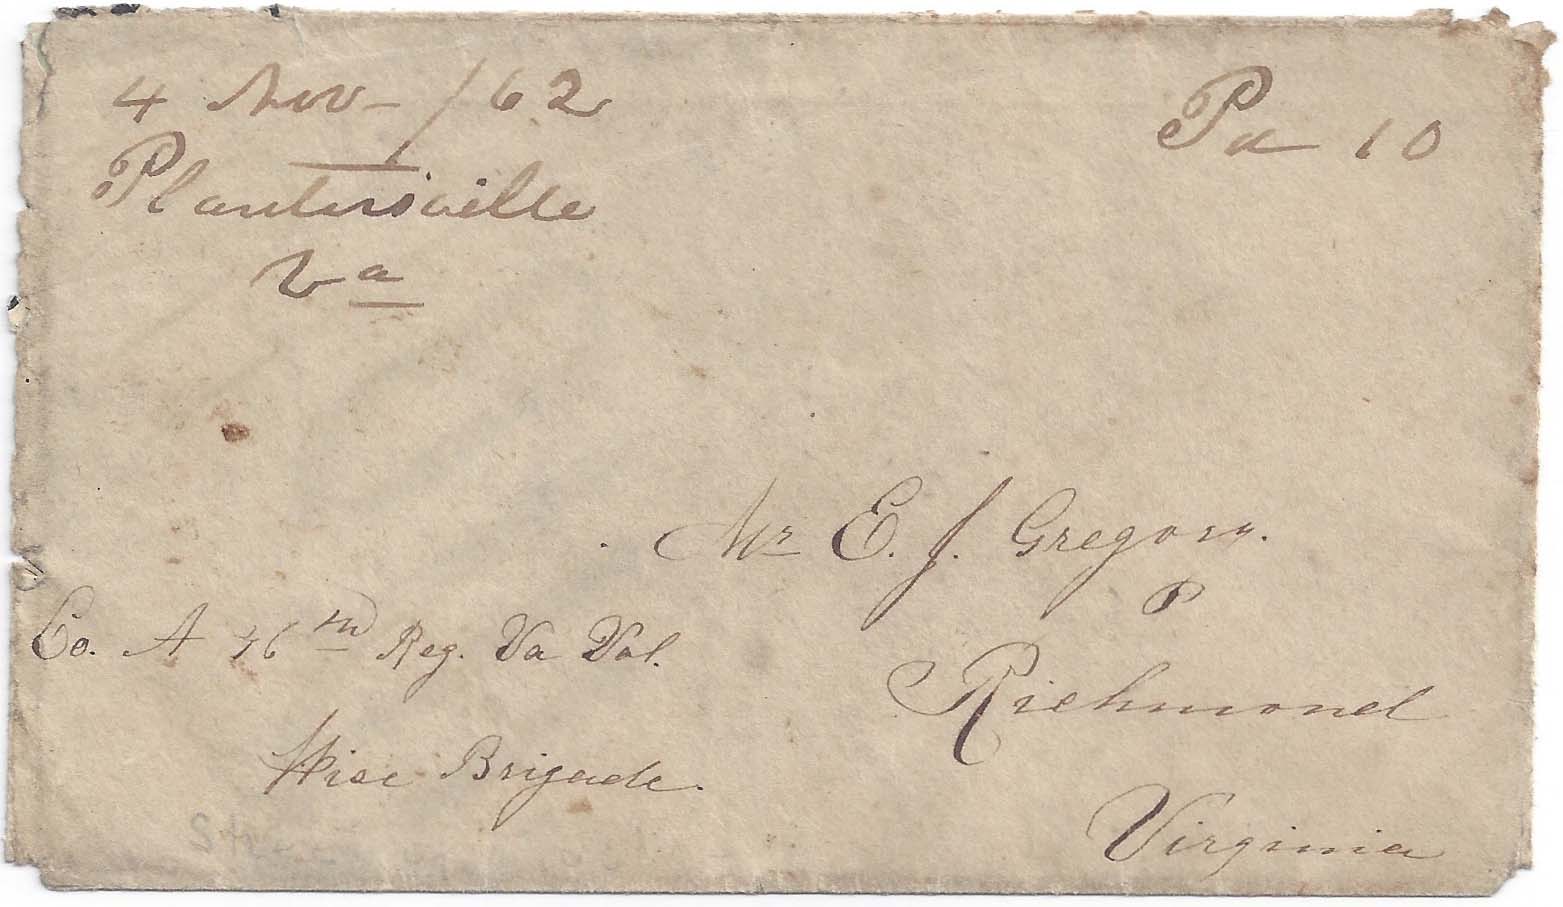 4 Nov - / 62
Pd 10
Plantersville
Va
Mr E. J. Gregory.
Co. A 46th Reg. Va Vol.
Richmond
Wise Brigade.
Virginia